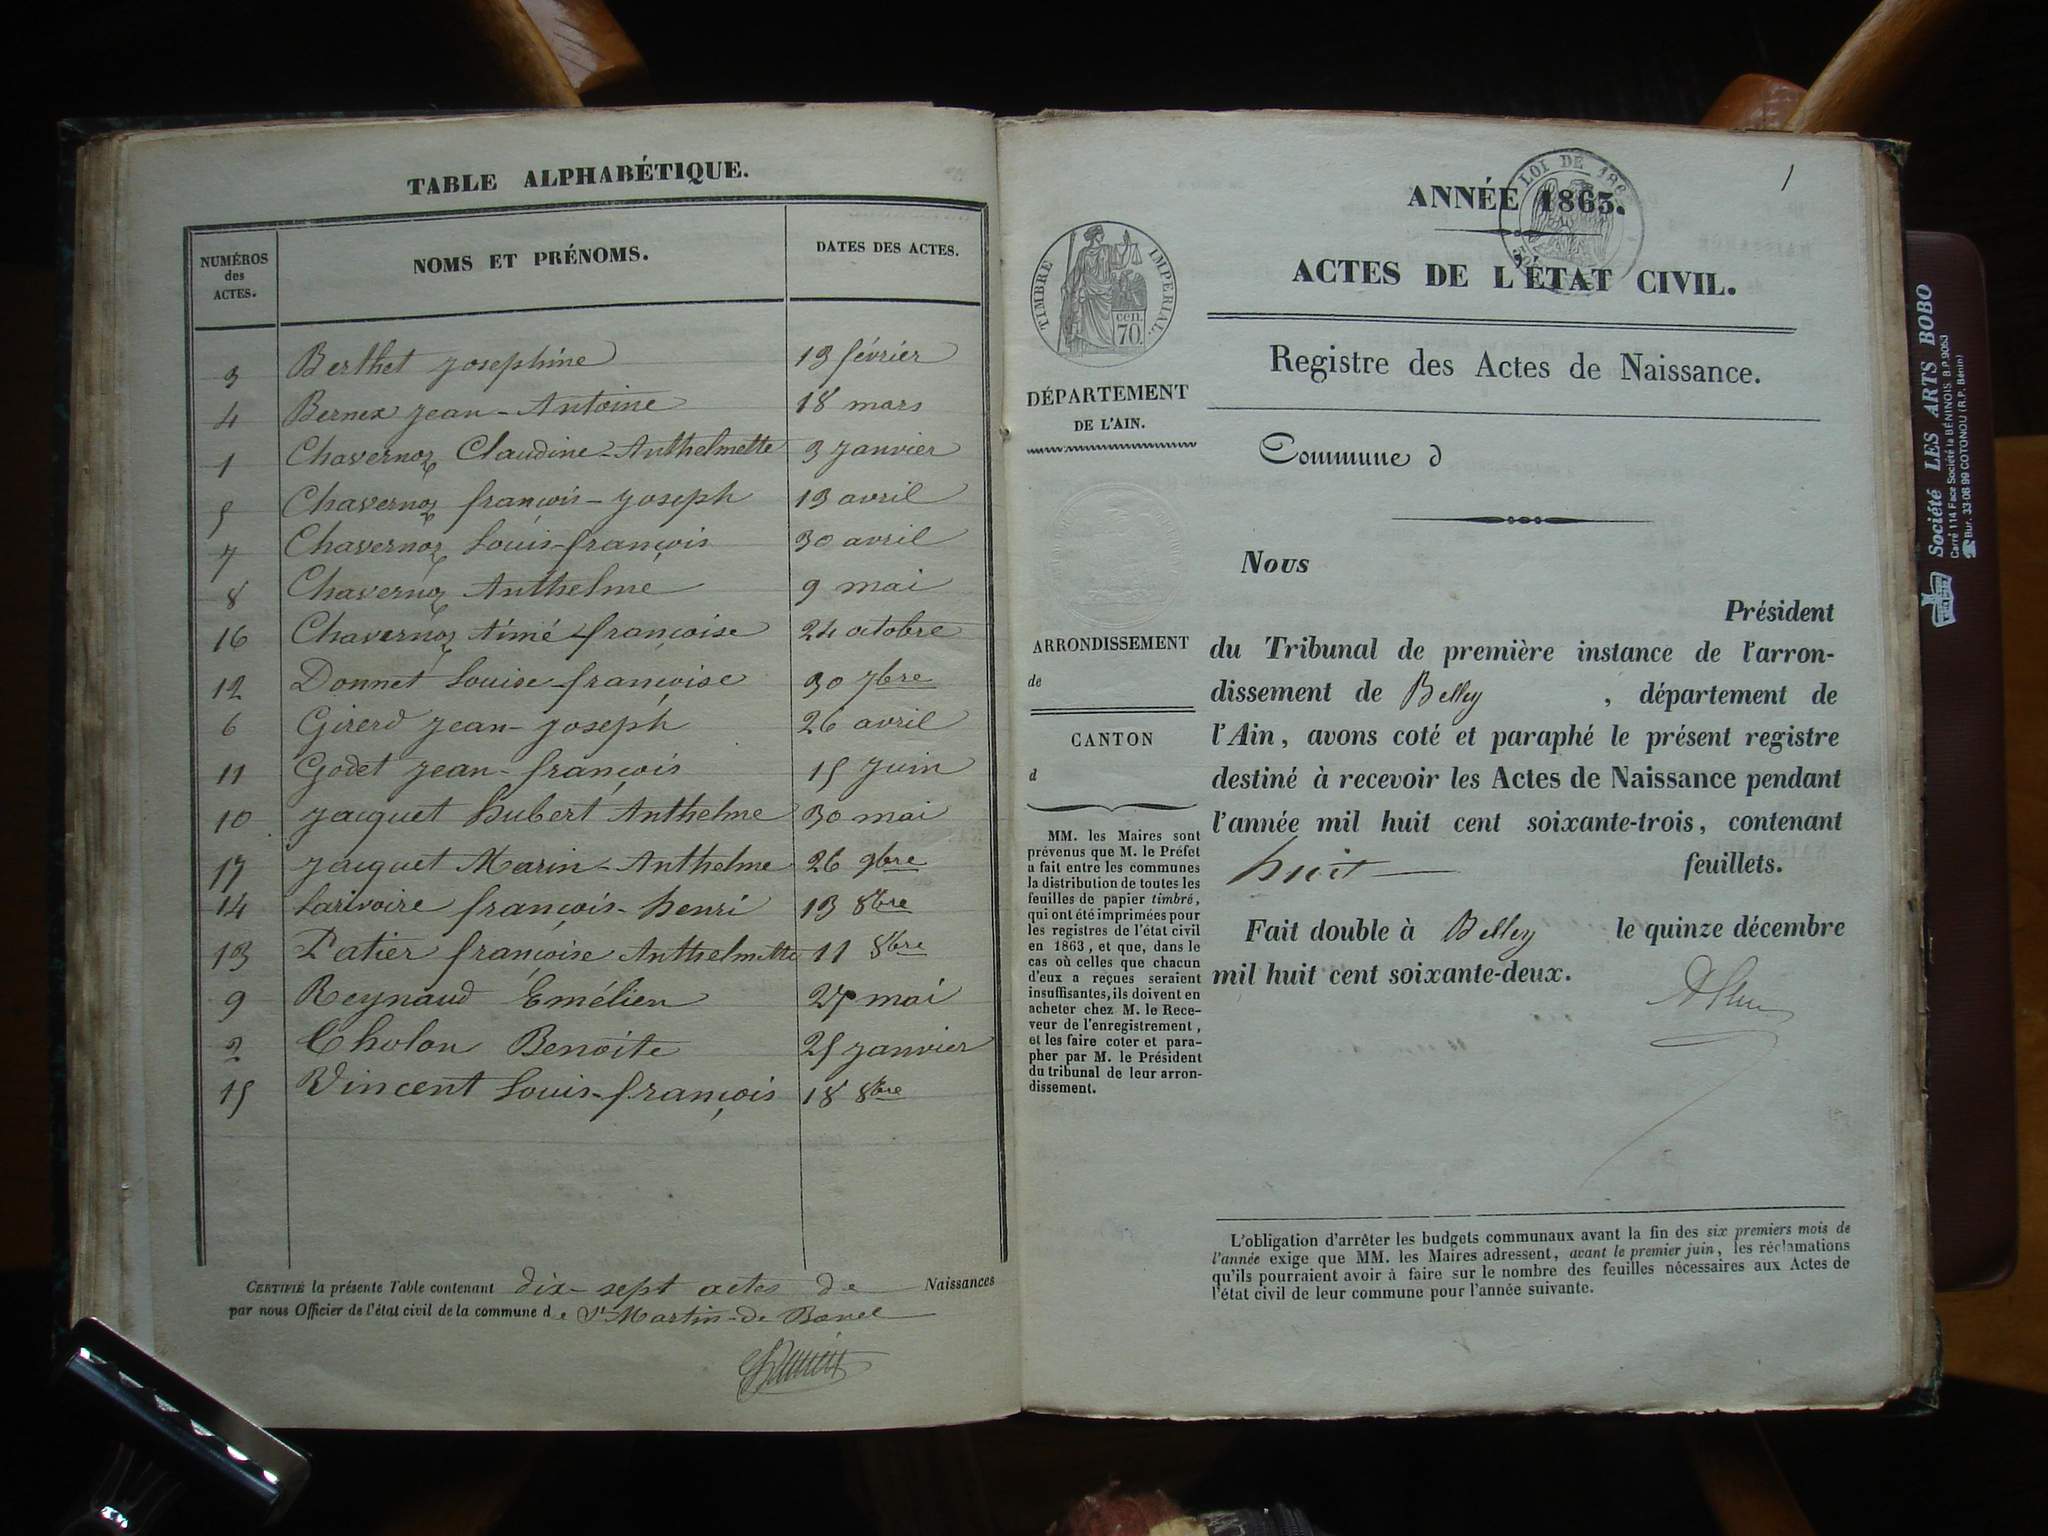 TABLE ALPHABÉTIQUE.
NUMÉROS des ACTES.
NOMS ET PRÉNOMS.
DATES DES ACTES.
3 Berthet Josephine 13 février
4 Bernex Jean-Antoine 18 mars
1 Chavernoz Claudine-Anthelmette 3 Janvier
5 Chavernoz françois-Joseph 13 avril
7 Chavernoz Louis-françois 30 avril
8 Chavernoz Anthelme 9 mai
16 Chavernoz Aimé-françoise 24 octobre
12 Donnet Louise-françoise 30 7bre
6 Girerd Jean-Joseph 26 avril
11 Godet Jean-françois 15 Juin
10 Jacquet hubert Anthelme 30 mai
17 Jacquet Marin-Anthelme 26 9bre
14 Larivoire françois-henri 13 8bre
13 Patier françoise Anthelmette 11 8bre
9 Reynaud Emélien 27 mai
2 Tholon Benoite 25 Janvier
15 Vincent Louis-françois 18 8bre
CERTIFIÉ la présente Table contenant dix-sept actes de Naissances
par nous Officier de l'état civil de la commune de St Martin-de Bavel
1
LOI DE
ANNÉE 1863.
ACTES DE L'ÉTAT CIVIL.
TIMBRE IMPERIAL.
70.
cen.
Registre des Actes de Naissance.
DÉPARTEMENT
DE L'AIN.
Commune d
Nous
Président
du Tribunal de première instance de l'arron-
dissement de Belley , département de
l'Ain, avons coté et paraphé le présent registre
destiné à recevoir les Actes de Naissance pendant
l'année mil huit cent soixante-trois, contenant
huit feuillets.
Fait double à Belley le quinze décembre
mil huit cent soixante-deux.
ARRONDISSEMENT
de
CANTON
d
MM. les Maires sont
prévenus que M. le Préfet
a fait entre les communes
la distribution de toutes les
feuilles de papier timbré,
qui ont été imprimées pour
les registres de l'état civil
en 1863, et que, dans le
cas où celles que chacun
d'eux a reçues seraient
insuffisantes, ils doivent en
acheter chez M. le Rece-
veur de l'enregistrement,
et les faire coter et para-
pher par M. le Président
du tribunal de leur arron-
dissement.
L'obligation d'arrêter les budgets communaux avant la fin des six premiers mois de
l'année exige que MM. les Maires adressent, avant le premier juin, les réclamations
qu'ils pourraient avoir à faire sur le nombre des feuilles nécessaires aux Actes de
l'état civil de leur commune pour l'année suivante.
Société LES ARTS BOBO
Carré 114 Face Société la BÉNINOIS. B.P. 9063
Bur. 33-08 99 COTONOU (R.P. Bénin)